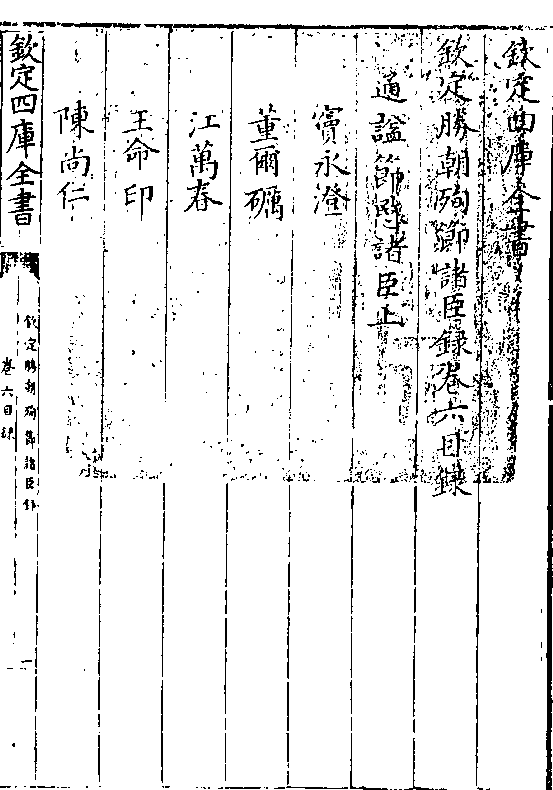 欽定四庫全書
欽定勝朝殉節諸臣錄卷六目錄
通諡節愍諸臣上
竇永澄
董爾礪
江萬春
王命印
陳尚仁
欽定四庫全書
欽定勝朝殉節諸臣錄
卷六目錄
一